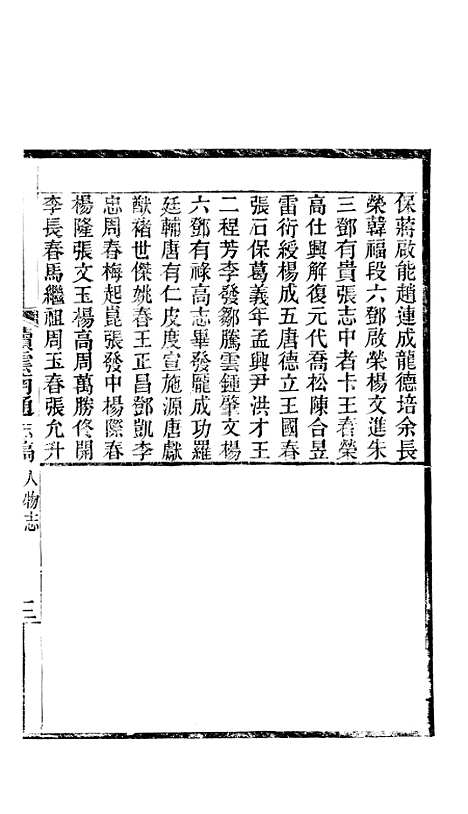 保蔣啟能趙連成龍德培余長
榮韓福段六鄧啟榮楊文進朱
三鄧有貴張志中者卡王春榮
高仕興解復元代喬松陳合昱
雷衔綬楊成五唐德立王國春
張石保葛義年孟興尹洪才王
二程芳李發鄒騰雲鍾肇文楊
六鄧有祿高志畢發龎成功羅
廷輔唐有仁皮度宣施源唐獻
猷褚世傑姚春王正昌鄧凱李
忠周春梅起崑張發中楊際春
楊隆張文玉楊高周萬勝佟開
李長春馬繼祖周玉春張允升
續雲南通志稿 人物志